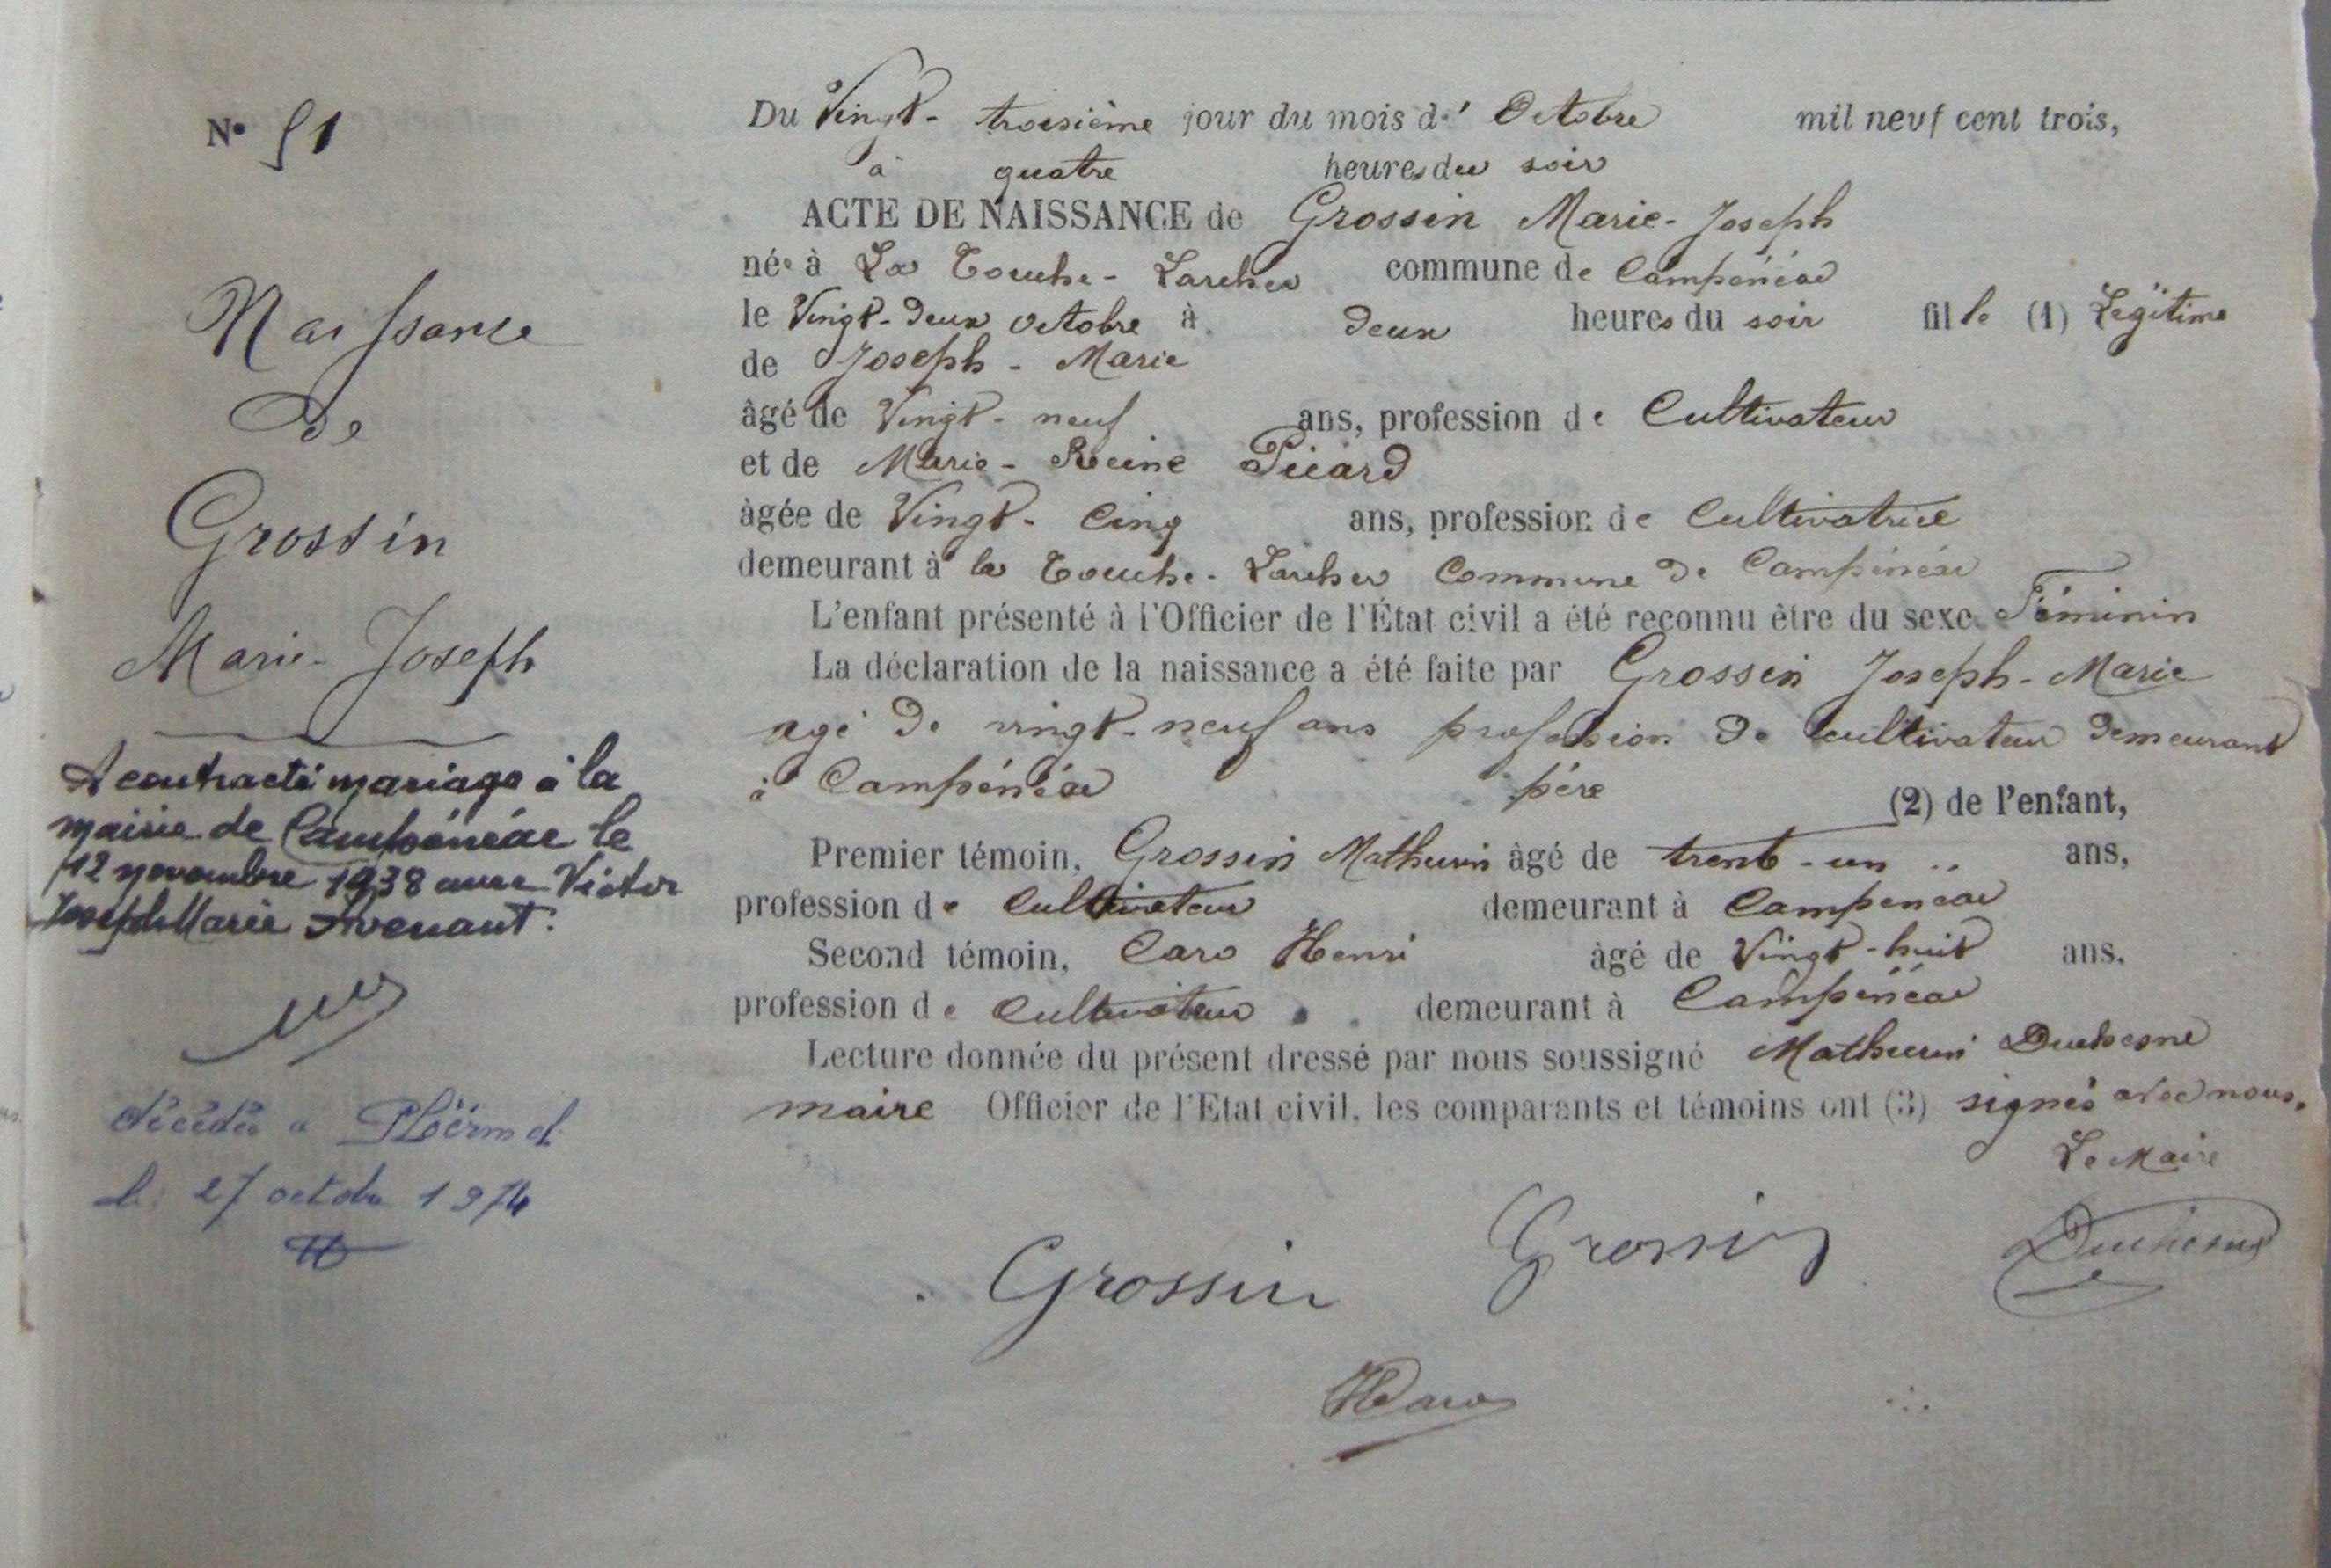 N° 51
Naissance
de
Grossin
Marie-Joseph
A contracté mariage à la
mairie de Campénéac le
12 novembre 1938 avec Victor
Joseph Marie Avenant.
décédée à Ploërmel
le 27 octobre 1974
Du Vingt-troisième jour du mois d' Octobre mil neuf cent trois,
à quatre heures du soir
ACTE DE NAISSANCE de Grossin Marie-Joseph
née à La Touche-Larcher commune de Campénéac
le Vingt-deux octobre à deux heures du soir fille (1) Légitime
de Joseph-Marie
âgé de Vingt-neuf ans, profession de Cultivateur
et de Marie-Reine Picard
âgée de Vingt-Cinq ans, profession de Cultivatrice
demeurant à la Touche-Larcher Commune de Campénéac
L'enfant présenté à l'Officier de l'État civil a été reconnu être du sexe Féminin
La déclaration de la naissance a été faite par Grossin Joseph-Marie
agé de vingt-neuf ans profession de cultivateur demeurant
à Campénéac père (2) de l'enfant,
Premier témoin, Grossin Mathurin âgé de trent-un ans,
profession de Cultivateur demeurant à Campénéac
Second témoin, Caro Henri âgé de Vingt-huit ans.
profession de Cultivateur demeurant à Campénéac
Lecture donnée du présent dressé par nous soussigné Mathurin Duchesne
maire Officier de l'Etat civil, les comparants et témoins ont (3) signés avec nous.
Le Maire
Grossin Grossin Duchesne
H Caro